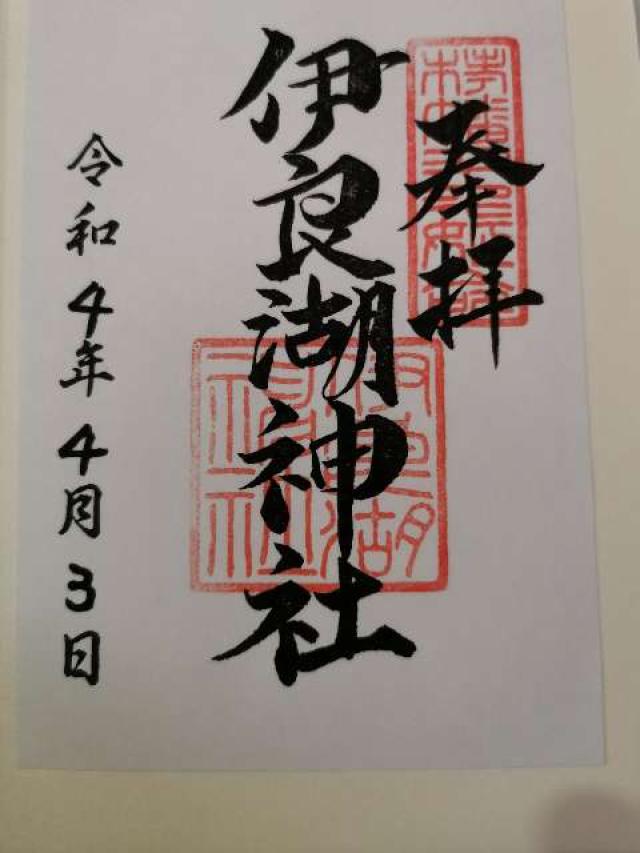 奉拝
伊良湖神社
令和4年4月3日
伊良湖神社